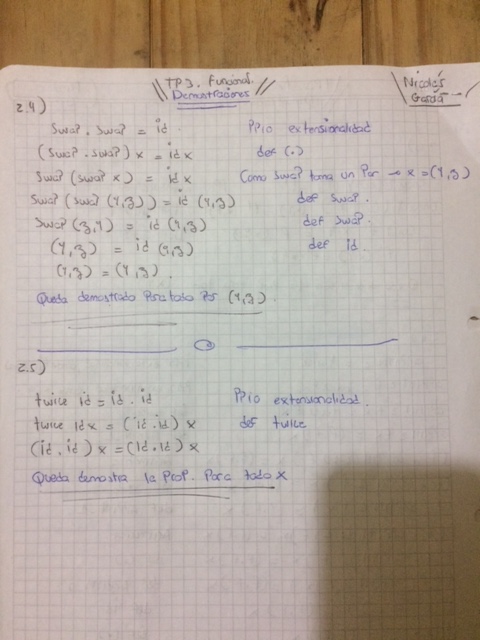 TP3. Funcional.
Demostraciones
Nicolás
García
2.4)
swap . swap = id. Ppio extensionalidad
(swap . swap) x = id x def (.)
swap (swap x) = id x Como swap toma un Par → x = (y,z)
swap (swap (y,z)) = id (y,z) def swap.
swap (z,y) = id (y,z) def swap.
(y,z) = id (y,z) def id.
(y,z) = (y,z).
Queda demostrado Para todo Par (y,z).
2.5)
twice id = id . id Ppio extensionalidad.
twice id x = (id . id) x def twice
(id . id) x = (id . id) x
Queda demostra la Prop. Para todo x